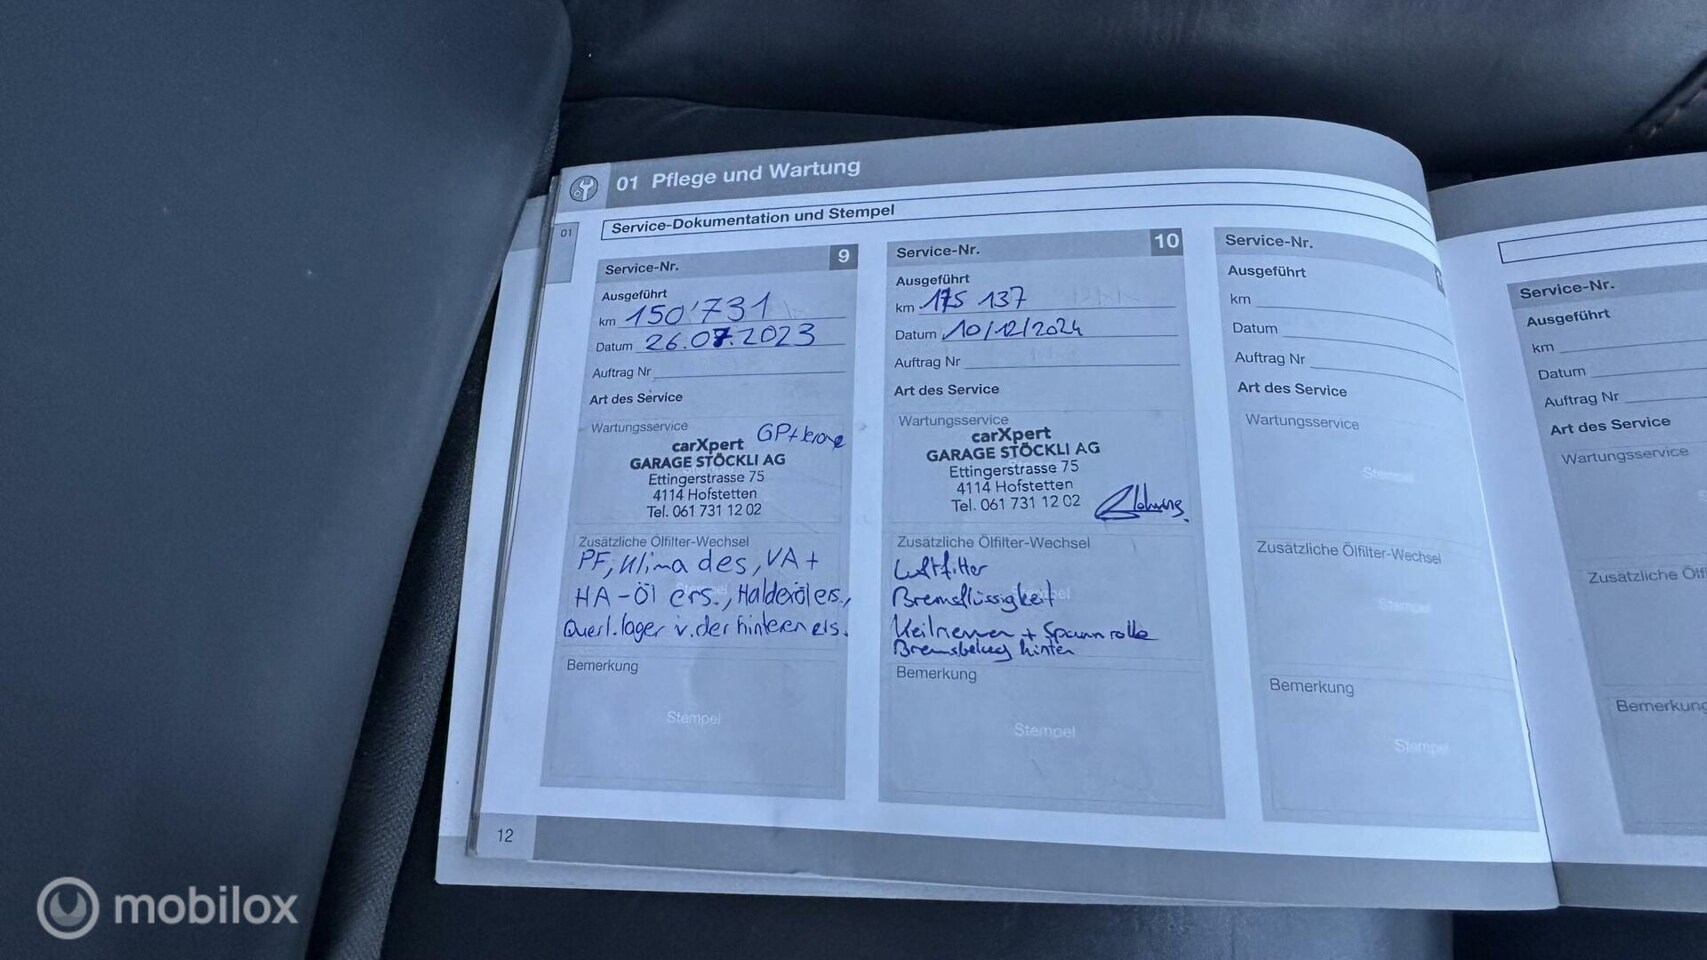 01 Pflege und Wartung
01
Service-Dokumentation und Stempel
Service-Nr. 9
Ausgeführt
km 150'731
Datum 26.07.2023
Auftrag Nr
Art des Service
Wartungsservice
GP+
carXpert
GARAGE STÖCKLI AG
Ettingerstrasse 75
4114 Hofstetten
Tel. 061 731 12 02
Zusätzliche Ölfilter-Wechsel
PF, Klima des, VA+
HA-Öl ers.,
Querl.lager v. der hinteren ers.
Bemerkung
Stempel
12
Service-Nr. 10
Ausgeführt
km 175 137
Datum 10/12/2024
Auftrag Nr
Art des Service
Wartungsservice
carXpert
GARAGE STÖCKLI AG
Ettingerstrasse 75
4114 Hofstetten
Tel. 061 731 12 02
Zusätzliche Ölfilter-Wechsel
Luftfilter
Bremsflüssigkeit
Keilriemen + Spannrolle
Bremsbelag hinten
Bemerkung
Stempel
Service-Nr.
Ausgeführt
km
Datum
Auftrag Nr
Art des Service
Wartungsservice
Stempel
Zusätzliche Ölfilter-Wechsel
Stempel
Bemerkung
Stempel
Service-Nr.
Ausgeführt
km
Datum
Auftrag Nr
Art des Service
Wartungsservice
Zusätzliche Ölf
Bemerkung
mobilox